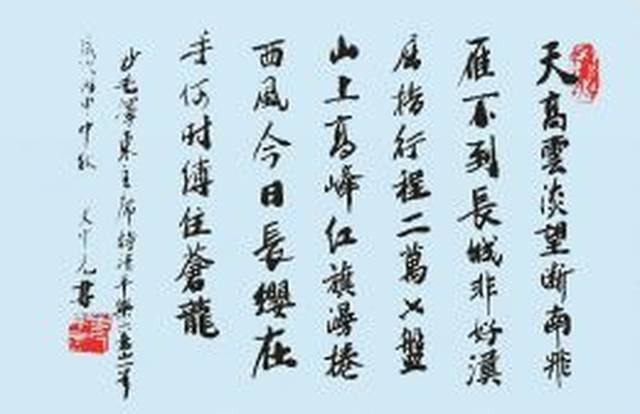 天高雲淡望断南飛
雁不到長城非好漢
屈指行程二萬六盤
山上高峰红旗漫捲
西風今日長纓在
手何时縛住蒼龍
毛澤東主席詩清平樂六盤山一首
中秋 書